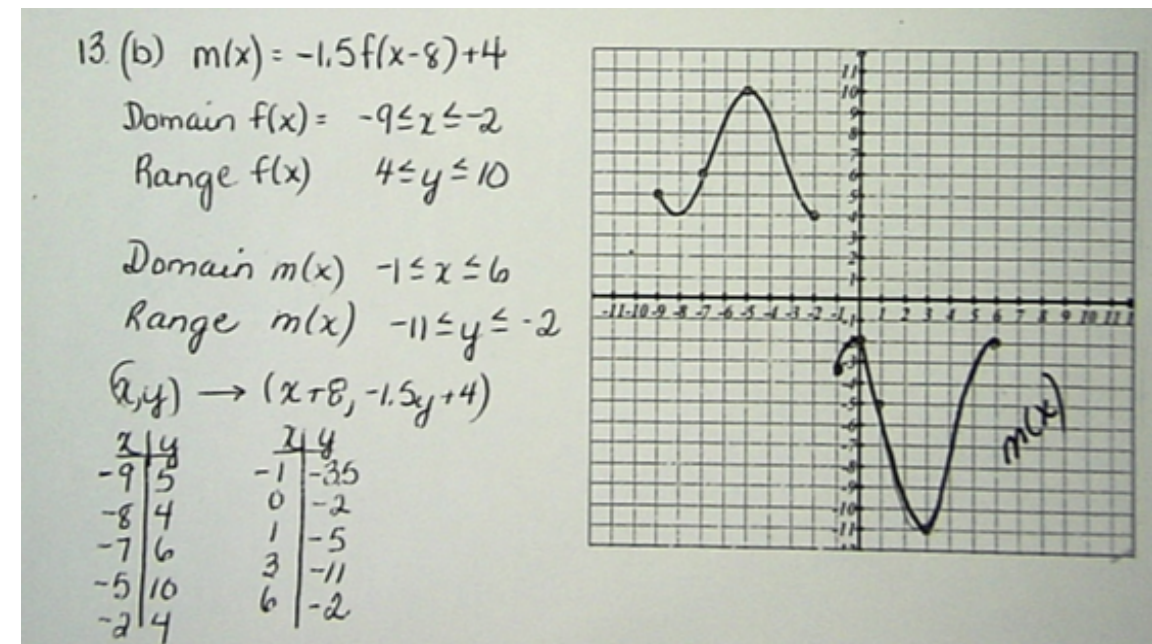 13. (b) m(x) = -1.5f(x-8)+4
Domain f(x) = -9≤x≤-2
Range f(x) 4≤y≤10
Domain m(x) -1≤x≤6
Range m(x) -11≤y≤-2
(x,y) → (x+8, -1.5y+4)
x | y
-9 | 5
-8 | 4
-7 | 6
-5 | 10
-2 | 4
x | y
-1 | -3.5
0 | -2
1 | -5
3 | -11
6 | -2
11
10
9
8
7
6
5
4
3
2
1
-11 -10 -9 -8 -7 -6 -5 -4 -3 -2 -1 1 2 3 4 5 6 7 8 9 10 11
-1
-3
-4
-5
-6
-7
-8
-9
-10
-11
m(x)